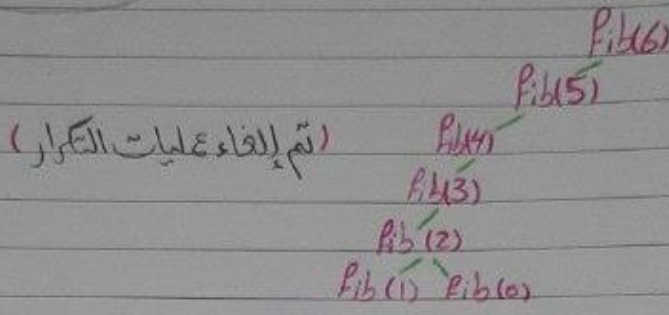 Fib(6)
Fib(5)
(تم إلغاء عمليات التكرار) Fib(4)
Fib(3)
Fib(2)
Fib(1) Fib(0)